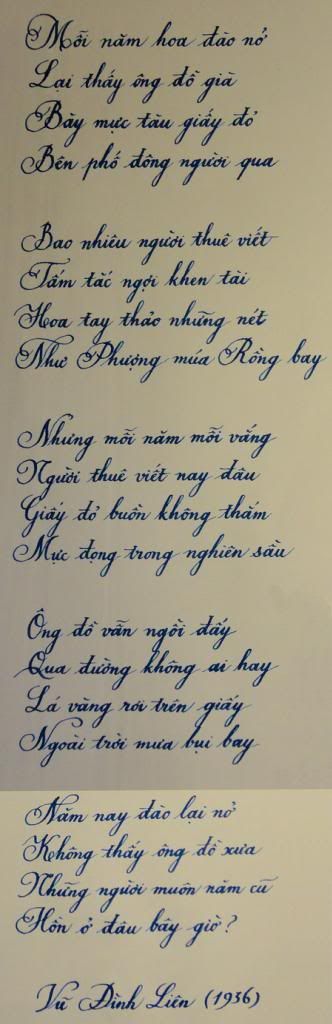 Mỗi năm hoa đào nở
Lại thấy ông đồ già
Bày mực tàu giấy đỏ
Bên phố đông người qua
Bao nhiêu người thuê viết
Tấm tắc ngợi khen tài
Hoa tay thảo những nét
Như Phượng múa Rồng bay
Nhưng mỗi năm mỗi vắng
Người thuê viết nay đâu
Giấy đỏ buồn không thắm
Mực đọng trong nghiên sầu
Ông đồ vẫn ngồi đấy
Qua đường không ai hay
Lá vàng rơi trên giấy
Ngoài trời mưa bụi bay
Năm nay đào lại nở
Không thấy ông đồ xưa
Những người muôn năm cũ
Hồn ở đâu bây giờ?
Vũ Đình Liên (1936)